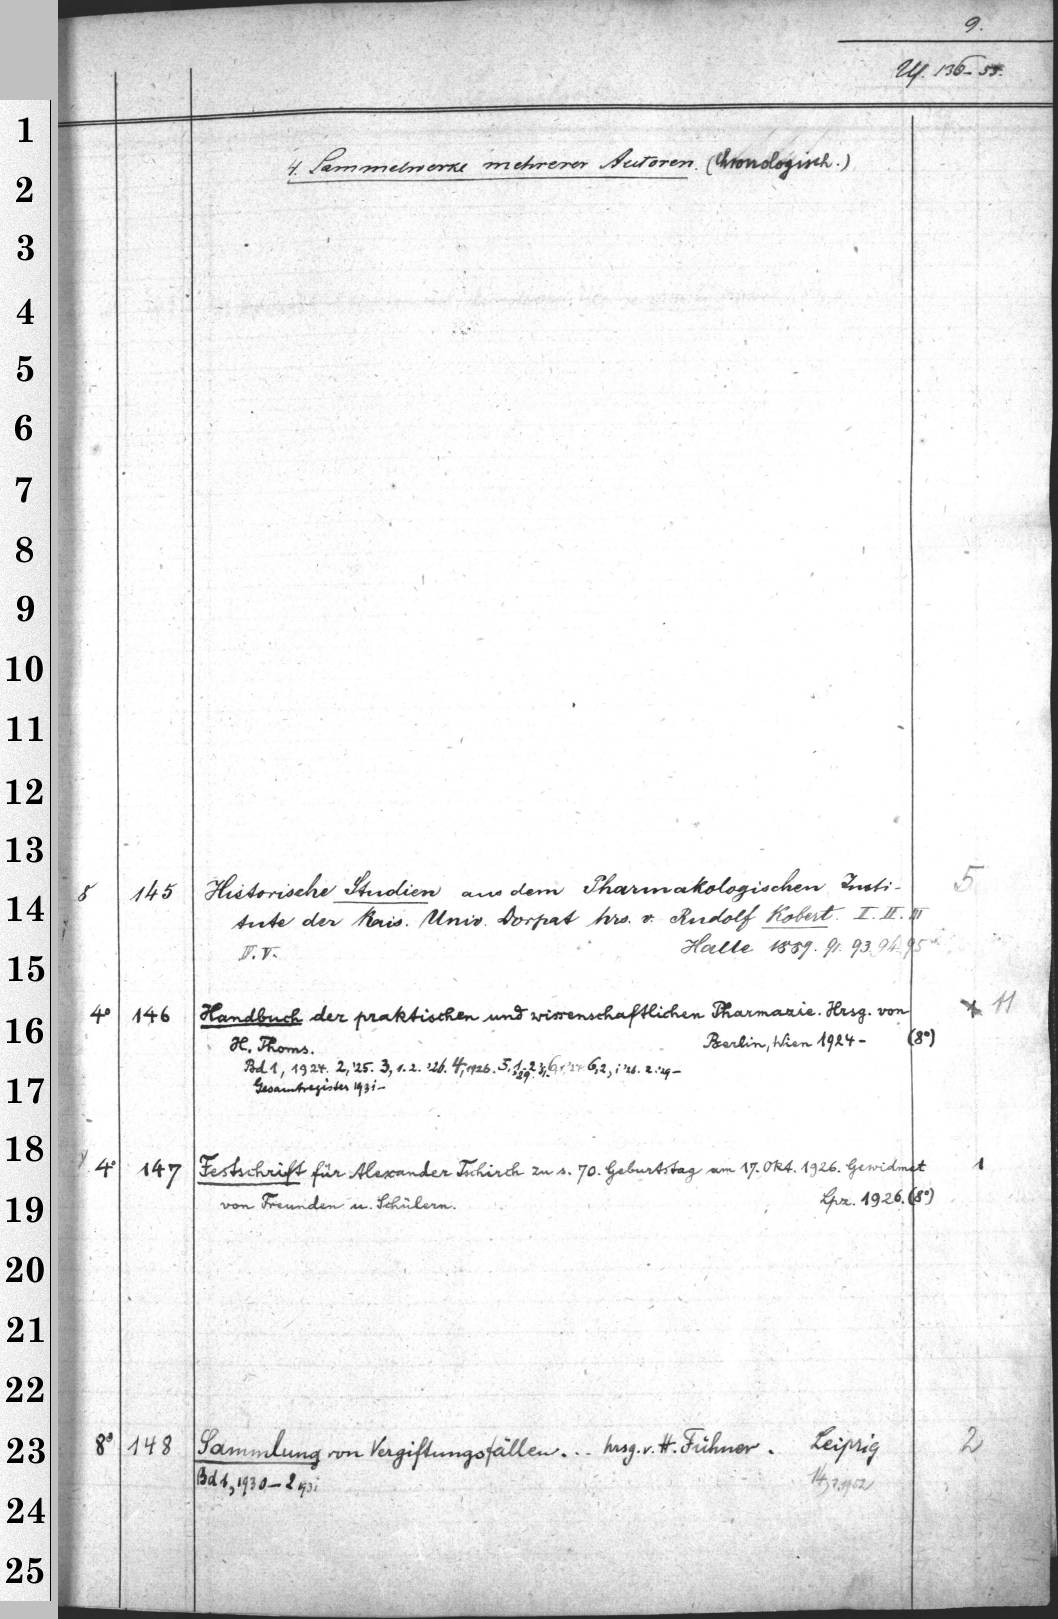 9.
136-55.
1
4. Sammelwerke mehrerer Autoren. (Chronologisch.)
2
3
4
5
6
7
8
9
10
11
12
13
8 145 Historische Studien aus dem Pharmakologischen Insti- 5
14
tute der Kais. Univ. Dorpat hrs. v. Rudolf Kobert. I. II. III
IV. V. Halle 1889. 91. 93. 94. 95
15
4° 146 Handbuch der praktischen und wissenschaftlichen Pharmazie. Hrsg. von 11
16
H. Thoms. Berlin, Wien 1924- (8°)
Bd 1, 1924. 2, '25. 3, 1. 2. '26. 4, 1926. 5, 1-2 6, 2, 1 '26. 2. '29-
Gesamtregister 1931-
17
18
4° 147 Festschrift für Alexander Tschirch zu s. 70. Geburtstag am 17. Okt. 1926. Gewidmet 1
19
von Freunden u. Schülern. Lpz. 1926. (8°)
20
21
22
23
8° 148 Sammlung von Vergiftungsfällen... hrsg. v. H. Fühner. Leipzig 2
Bd 1, 1930-2 1931 14, 1952
24
25